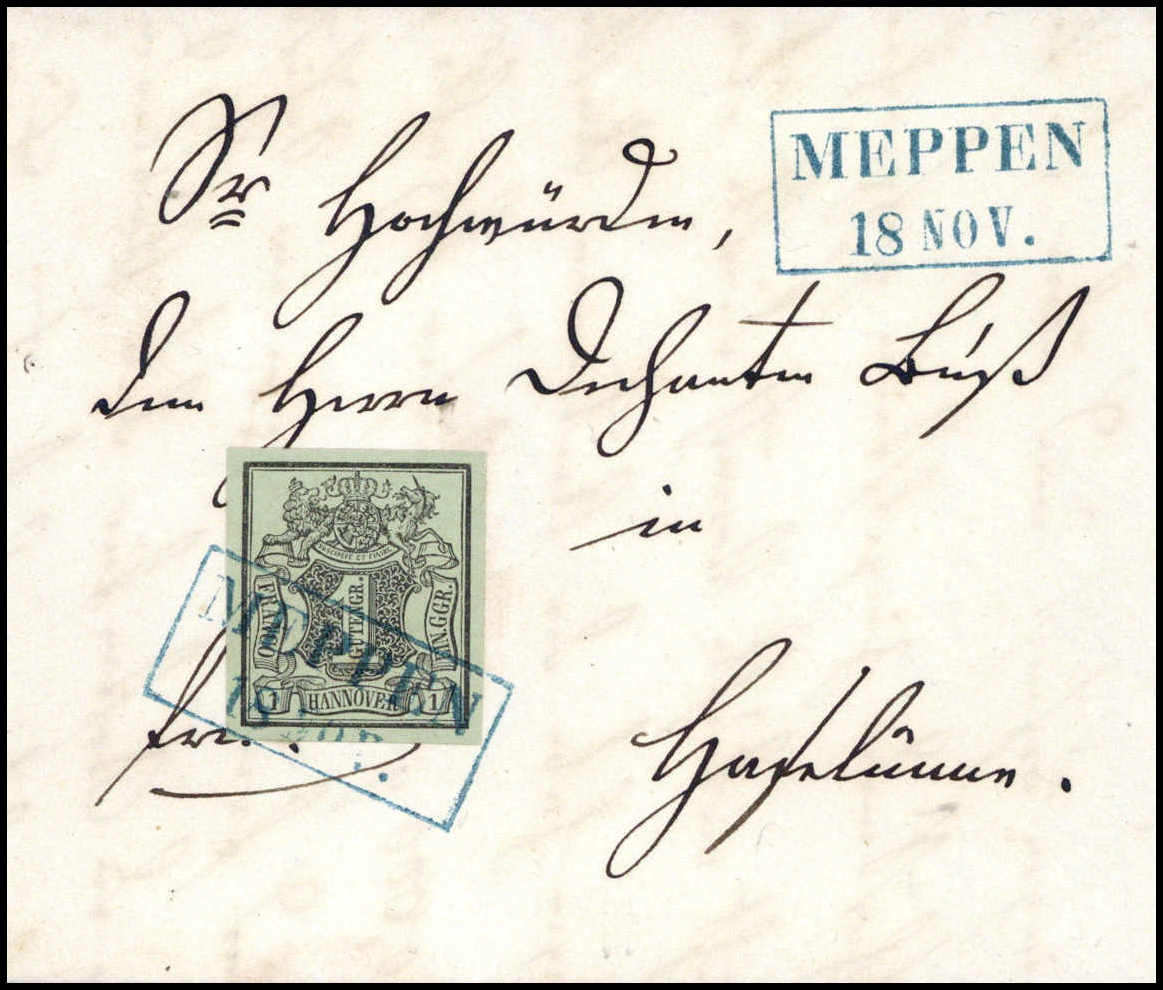 MEPPEN
18 NOV.
Sr Hochwürden,
dem Herrn Dechanten Büß
in
Haselünne.
frei.
SUSCIPERE ET FINIRE
FRANCO
1 GUTENGR.
EIN GGR.
1 HANNOVER 1
MEPPEN
18 NOV.